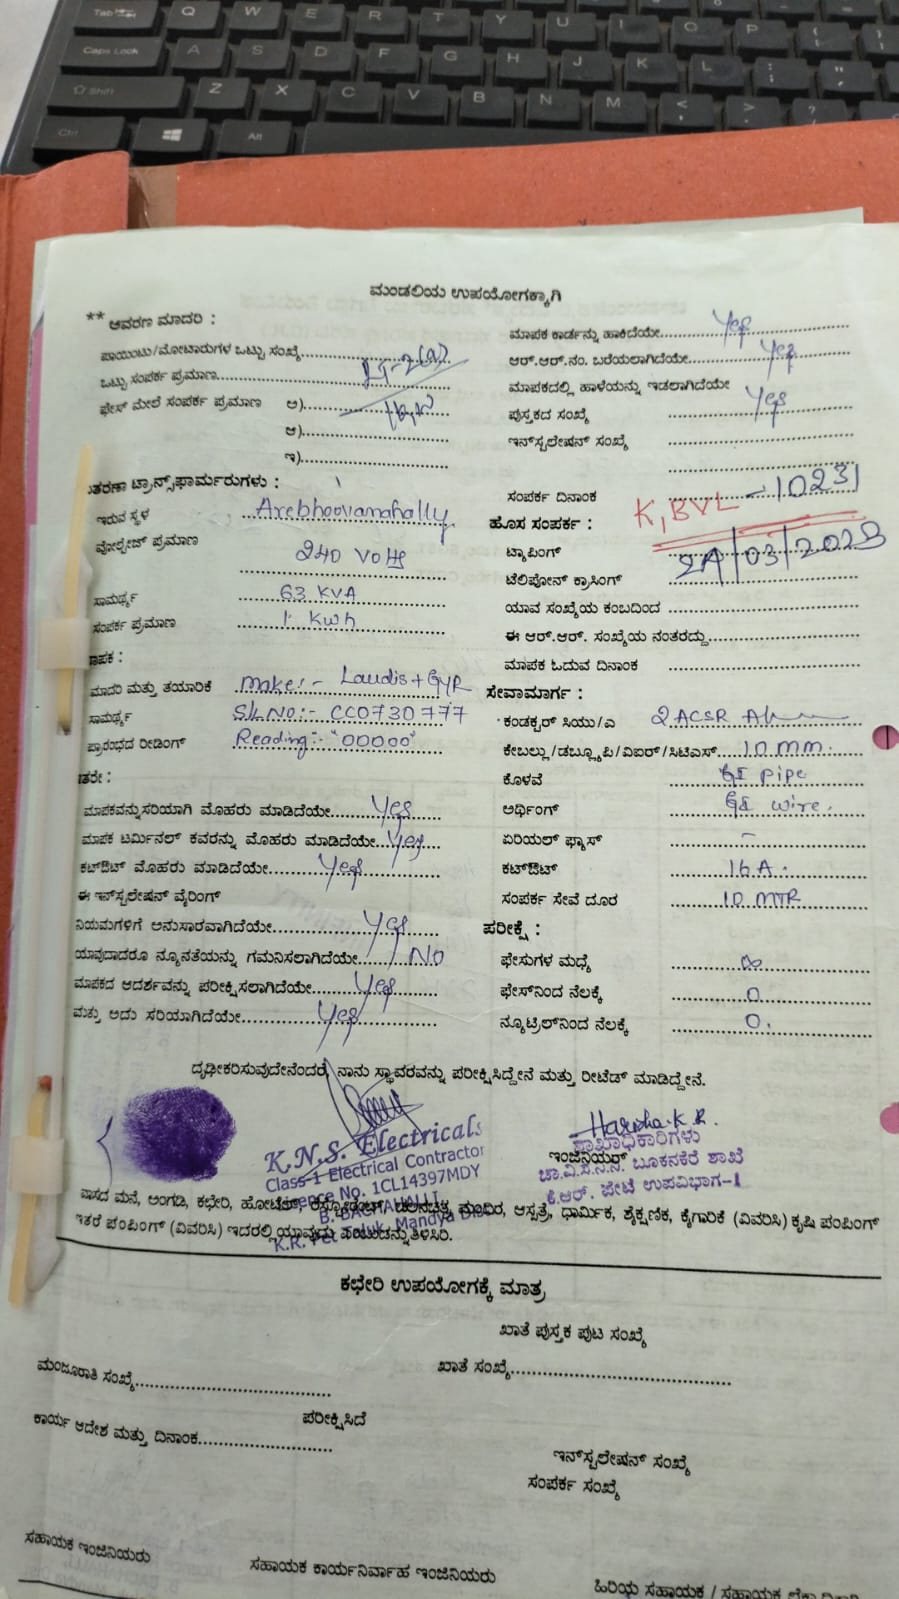 Tab Q W E R T Y U I O P
Caps Lock A S D F G H J K L
Shift Z X C V B N M < > ?
Ctrl Alt
ಮಂಡಲಿಯ ಉಪಯೋಗಕ್ಕಾಗಿ
** ಆವರಣ ಮಾದರಿ :
ಪಾಯಿಂಟು/ಮೋಟಾರುಗಳ ಒಟ್ಟು ಸಂಖ್ಯೆ
ಒಟ್ಟು ಸಂಪರ್ಕ ಪ್ರಮಾಣ
ಫೇಸ್ ಮೇಲೆ ಸಂಪರ್ಕ ಪ್ರಮಾಣ ಅ)
ಆ)
ಇ)
ಮಾಪಕ ಕಾರ್ಡನ್ನು ಹಾಕಿದೆಯೇ Yes
ಆರ್.ಆರ್.ನಂ. ಬರೆಯಲಾಗಿದೆಯೇ Yes
ಮಾಪಕದಲ್ಲಿ ಹಾಳೆಯನ್ನು ಇಡಲಾಗಿದೆಯೇ
ಪುಸ್ತಕದ ಸಂಖ್ಯೆ Yes
ಇನ್‌ಸ್ಟಲೇಷನ್ ಸಂಖ್ಯೆ
ಸಂಪರ್ಕ ದಿನಾಂಕ
K, BVL - 10231
ತರಣಾ ಟ್ರಾನ್ಸ್‌ಫಾರ್ಮರುಗಳು :
ಇರುವ ಸ್ಥಳ Arebhoovanahally
ವೋಲ್ಟೇಜ್ ಪ್ರಮಾಣ 240 Volts
ಸಾಮರ್ಥ್ಯ 63 KVA
ಸಂಪರ್ಕ ಪ್ರಮಾಣ 1 Kwh
ಹೊಸ ಸಂಪರ್ಕ :
ಟ್ಯಾಪಿಂಗ್ /03/2023
ಟೆಲಿಪೋನ್ ಕ್ರಾಸಿಂಗ್
ಯಾವ ಸಂಖ್ಯೆಯ ಕಂಬದಿಂದ
ಈ ಆರ್.ಆರ್. ಸಂಖ್ಯೆಯ ನಂತರದ್ದು
ಮಾಪಕ ಓದುವ ದಿನಾಂಕ
ಾಪಕ :
ಮಾದರಿ ಮತ್ತು ತಯಾರಿಕೆ Make:- Laudis + GYR
ಸಾಮರ್ಥ್ಯ S/L No:- CC0730777
ಪ್ರಾರಂಭದ ರೀಡಿಂಗ್ Reading:- "00000"
ಸೇವಾಮಾರ್ಗ :
ಕಂಡಕ್ಟರ್ ಸಿಯು/ಎ 2 ACSR
ಕೇಬಲ್ಲು/ಡಬ್ಲ್ಯೂಪಿ/ವಿಐರ್/ಸಿಟಿಎಸ್ 10 mm.
ಕೊಳವೆ GI pipe
ಅರ್ಥಿಂಗ್ GI wire.
ಏರಿಯಲ್ ಫ್ಯೂಸ್ -
ಕಟ್‌ಔಟ್ 16 A.
ಸಂಪರ್ಕ ಸೇವೆ ದೂರ 10 MTR
ತರೇ :
ಮಾಪಕವನ್ನು ಸರಿಯಾಗಿ ಮೊಹರು ಮಾಡಿದೆಯೇ Yes
ಮಾಪಕ ಟರ್ಮಿನಲ್ ಕವರನ್ನು ಮೊಹರು ಮಾಡಿದೆಯೇ Yes
ಕಟ್‌ಔಟ್ ಮೊಹರು ಮಾಡಿದೆಯೇ Yes
ಈ ಇನ್‌ಸ್ಟಲೇಷನ್ ವೈರಿಂಗ್
ನಿಯಮಗಳಿಗೆ ಅನುಸಾರವಾಗಿದೆಯೇ Yes
ಯಾವುದಾದರೂ ನ್ಯೂನತೆಯನ್ನು ಗಮನಿಸಲಾಗಿದೆಯೇ No
ಮಾಪಕದ ಆದರ್ಶವನ್ನು ಪರೀಕ್ಷಿಸಲಾಗಿದೆಯೇ Yes
ಮತ್ತು ಅದು ಸರಿಯಾಗಿದೆಯೇ Yes
ಪರೀಕ್ಷೆ :
ಫೇಸುಗಳ ಮಧ್ಯೆ ∞
ಫೇಸ್‌ನಿಂದ ನೆಲಕ್ಕೆ 0
ನ್ಯೂಟ್ರಿಲ್‌ನಿಂದ ನೆಲಕ್ಕೆ 0.
ದೃಢೀಕರಿಸುವುದೇನೆಂದರೆ, ನಾನು ಸ್ಥಾವರವನ್ನು ಪರೀಕ್ಷಿಸಿದ್ದೇನೆ ಮತ್ತು ರೀಟೆಡ್ ಮಾಡಿದ್ದೇನೆ.
K.N.S. Electricals
Class-1 Electrical Contractor
Licence No. 1CL14397MDY
B. BACHAHALLI
K.R. Pet Taluk, Mandya Dist
Harsha.K.R.
ಶಾಖಾಧಿಕಾರಿಗಳು
ಇಂಜಿನಿಯರ್
ಚಾ.ವಿ.ಸ.ನಿ.ನಿ. ಬೂಕನಕೆರೆ ಶಾಖೆ
ಕೆ.ಆರ್. ಪೇಟೆ ಉಪವಿಭಾಗ-1
ವಾಸದ ಮನೆ, ಅಂಗಡಿ, ಕಛೇರಿ, ಹೋಟೆಲ್, ರೆಸ್ಟೋರೆಂಟ್, ಚಲನಚಿತ್ರ ಮಂದಿರ, ಆಸ್ಪತ್ರೆ, ಧಾರ್ಮಿಕ, ಶೈಕ್ಷಣಿಕ, ಕೈಗಾರಿಕೆ (ವಿವರಿಸಿ) ಕೃಷಿ ಪಂಪಿಂಗ್
ಇತರೆ ಪಂಪಿಂಗ್ (ವಿವರಿಸಿ) ಇದರಲ್ಲಿ ಯಾವುದು ತಿಳಿಸಿರಿ.
ಕಛೇರಿ ಉಪಯೋಗಕ್ಕೆ ಮಾತ್ರ
ಖಾತೆ ಪುಸ್ತಕ ಪುಟ ಸಂಖ್ಯೆ
ಮಂಜೂರಾತಿ ಸಂಖ್ಯೆ
ಖಾತೆ ಸಂಖ್ಯೆ
ಕಾರ್ಯ ಆದೇಶ ಮತ್ತು ದಿನಾಂಕ
ಪರೀಕ್ಷಿಸಿದೆ
ಇನ್‌ಸ್ಟಲೇಷನ್ ಸಂಖ್ಯೆ
ಸಂಪರ್ಕ ಸಂಖ್ಯೆ
ಸಹಾಯಕ ಇಂಜಿನಿಯರು
ಸಹಾಯಕ ಕಾರ್ಯನಿರ್ವಾಹ ಇಂಜಿನಿಯರು
ಹಿರಿಯ ಸಹಾಯಕ / ಸಹಾಯಕ